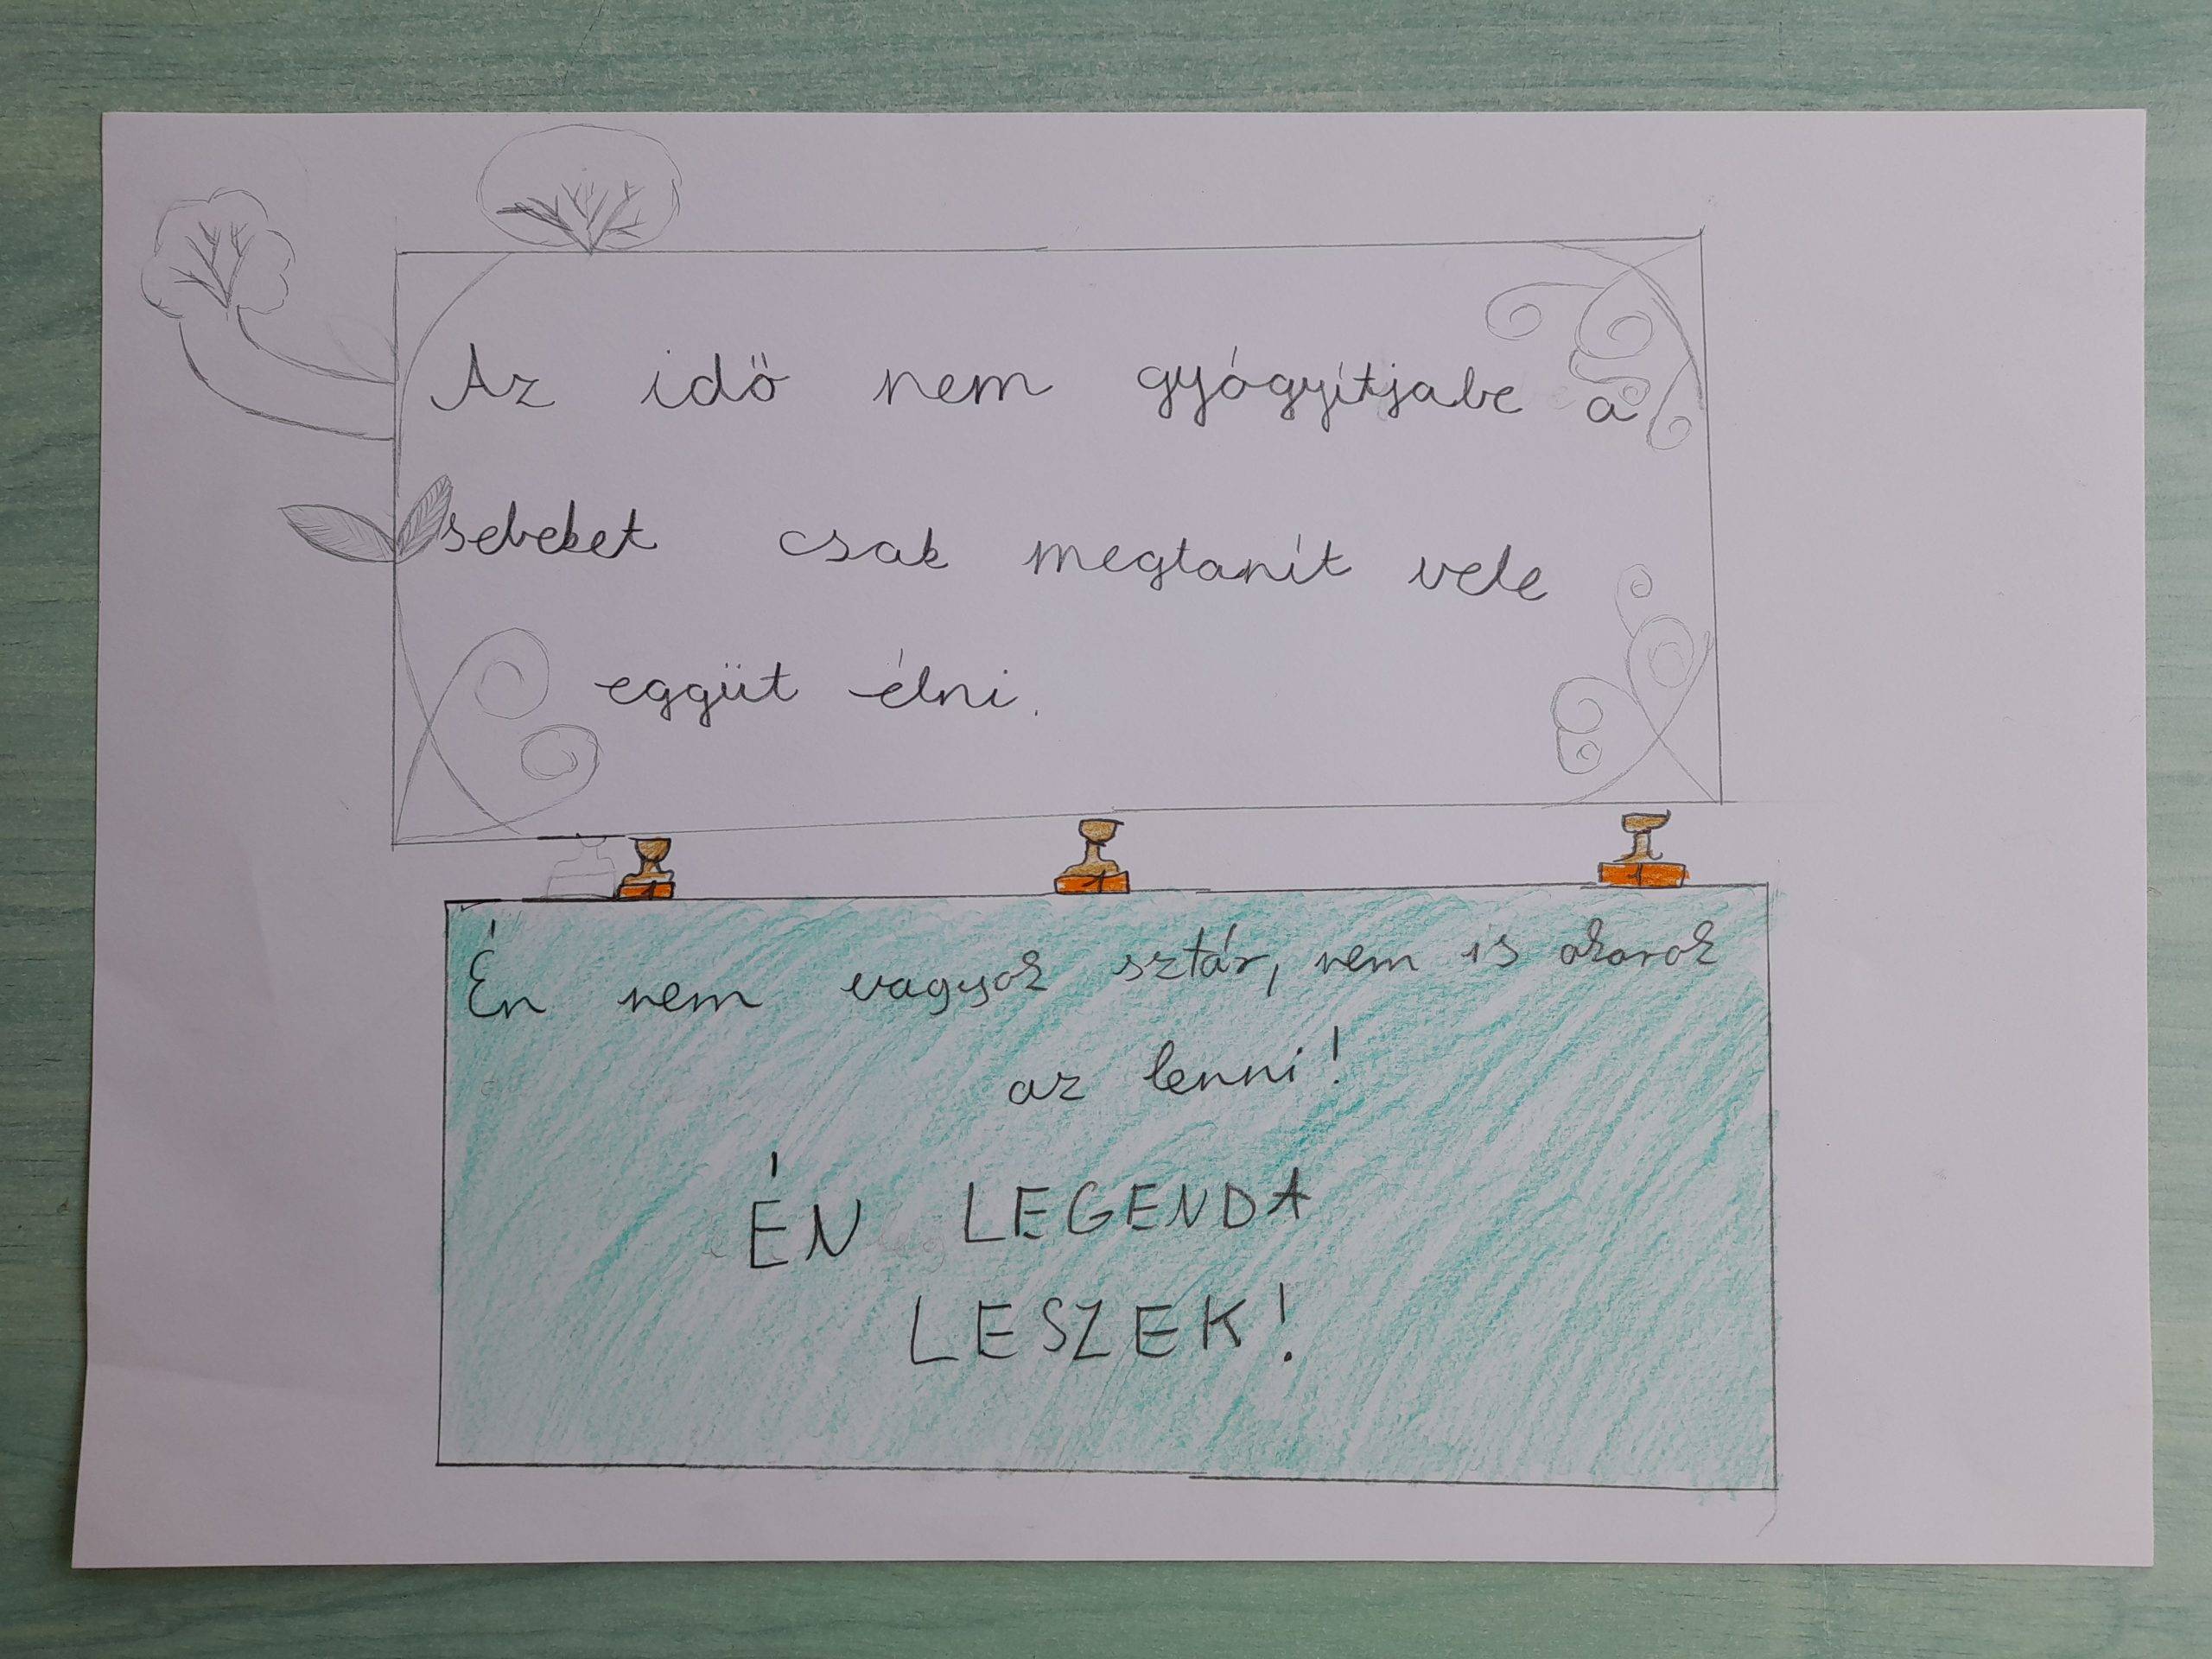 Az idő nem gyógyítjabe a
sebeket csak megtanít vele
eggüt élni.
1 1 1
Én nem vagyok sztár, nem is akarok
az lenni!
ÉN LEGENDA
LESZEK!